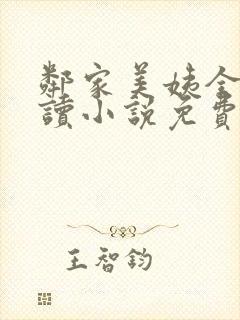 鄰家美姨全
讀小說免費
王智鈞